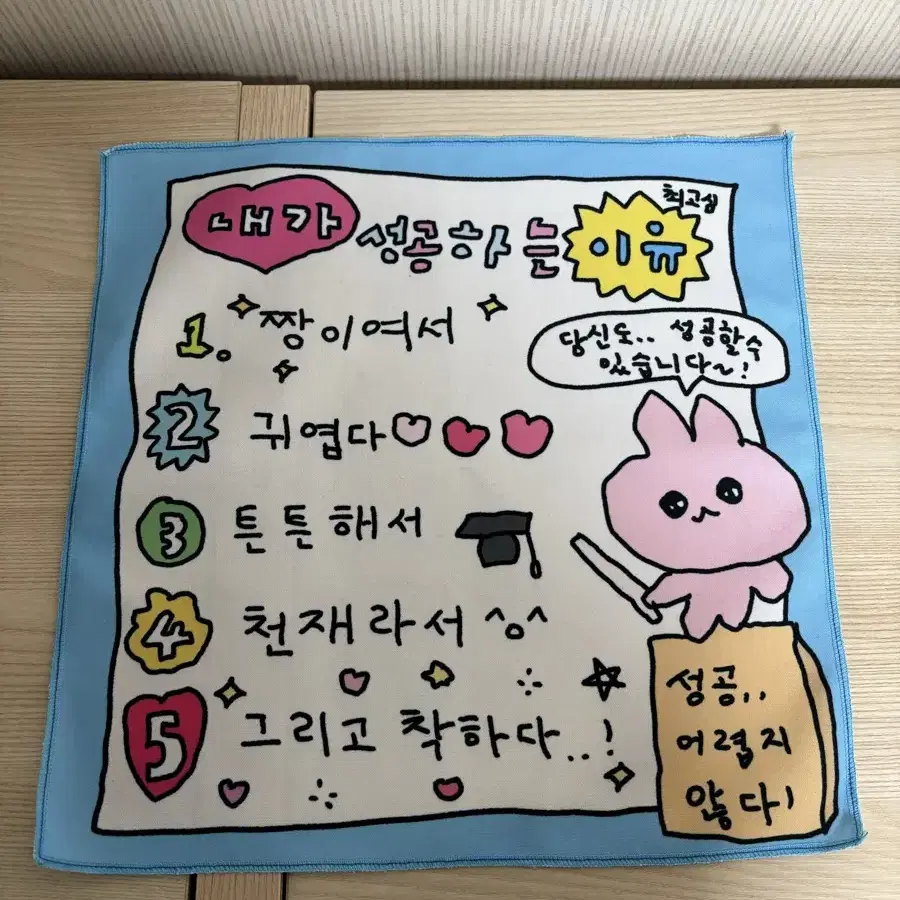 내가 성공하는 이유
최고심
1. 짱이여서
당신도.. 성공할수
있습니다~!
2 귀엽다♡♡♡
3 튼튼해서
4 천재라서 ^o^
5 그리고 착하다..!
성공..
어렵지
않다!